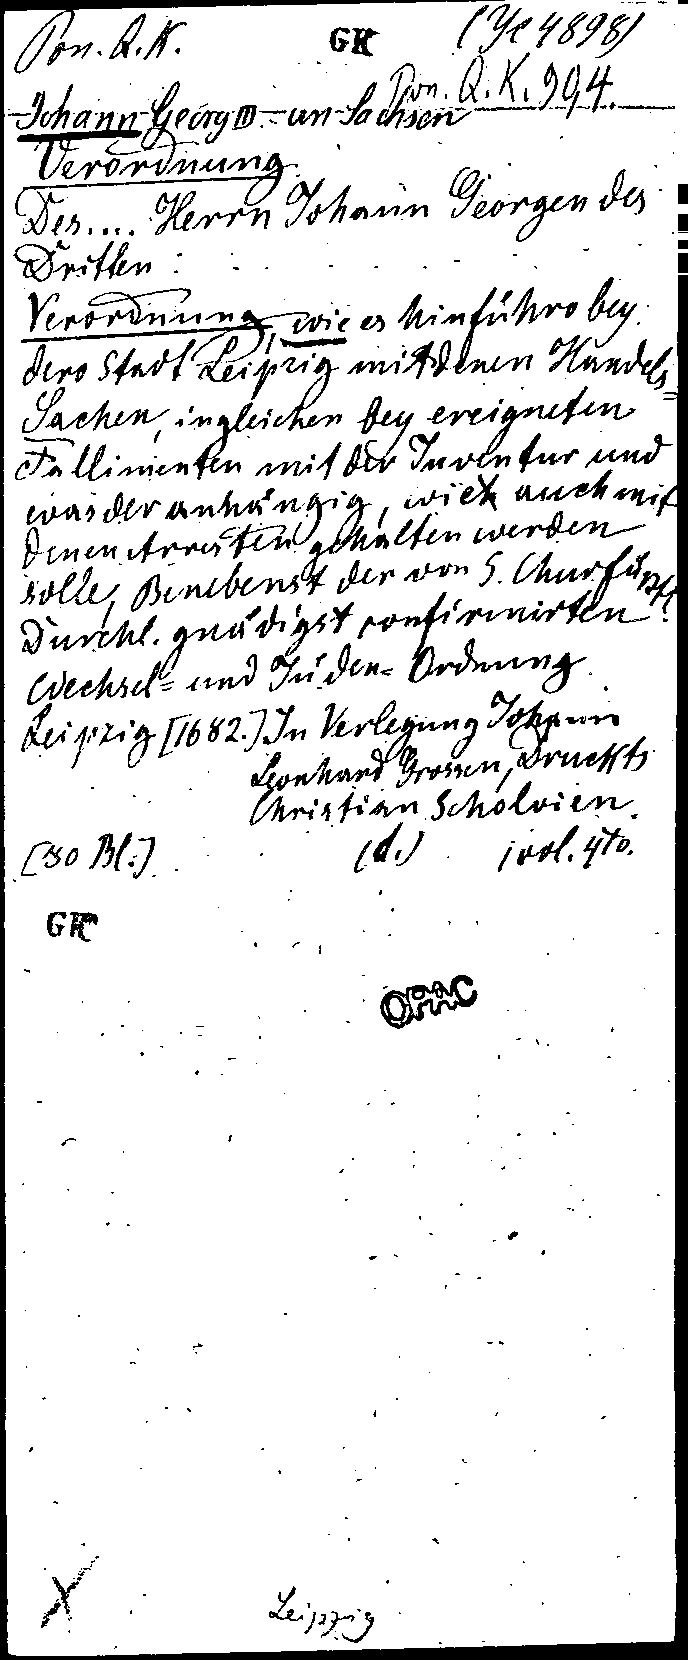 Pon. Q. K. GK (Ye 4898)
Pon. Q. K. 994.
Johann Georg III von Sachsen
Verordnung
Des.... Herrn Johann Georgen des
Dritten :
Verordnung, wie es hinführo bey
dero Stadt Leipzig mit denen Handels-
Sachen, ingleichen bey ereigneten
Fallimenten mit der Inventur und
was der anhängig, wie auch mit
denen Arresten gehalten werden
solle, Benebenst der von S. Churfürstl.
Durchl. gnädigst confirmirten
Wechsel= und Jüden= Ordnung.
Leipzig [1682.] In Verlegung Johann
Leonhard Grossen, Druckts
Christian Scholvien.
[30 Bl.] (d.) 1 vol. 4to.
GK
OPAC
X Leipzig